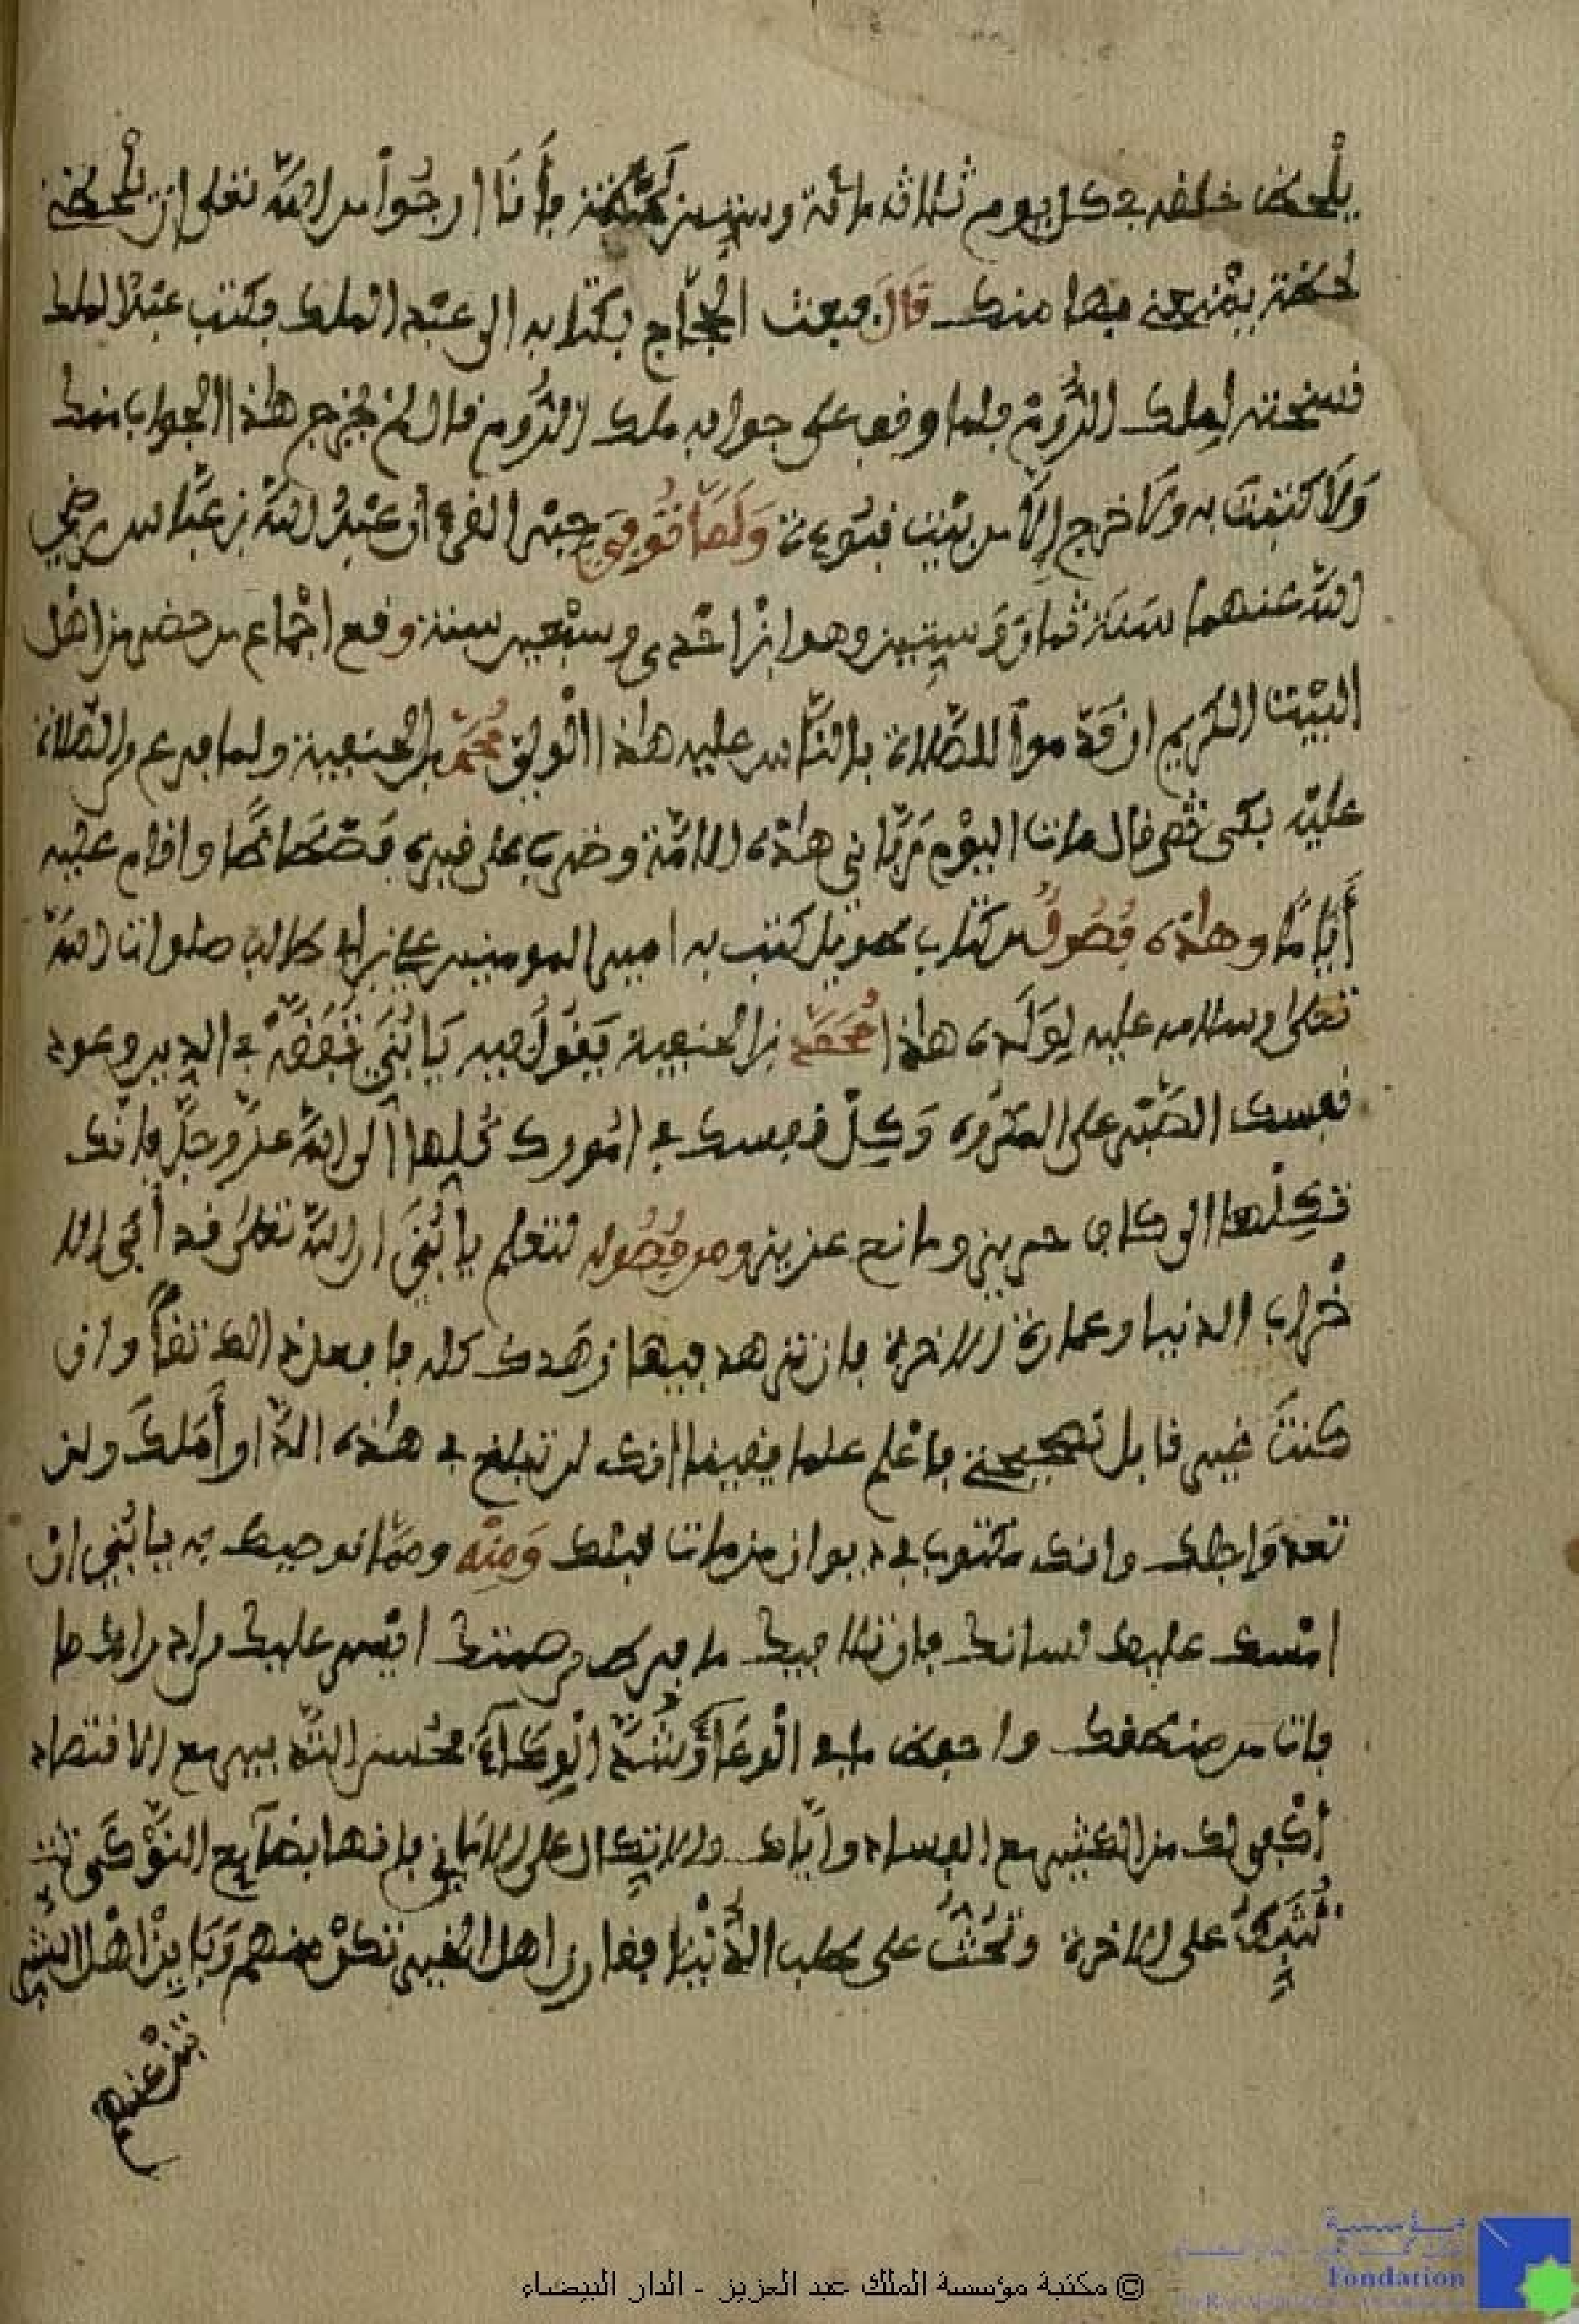 يلحظ خلقه في كل يوم ثلاث مائة وستين لحظة فأنا ارجوا من الله تعلى ان يلحظني
لحظة يمنعني بها منك قال فبعث الحجاج بكتابه الى عبد الملك فكتب عبد الملك
نسخته لملك الروم فلما وقف على جوابه ملك الروم قال لم يخرج هذا الجواب منك
ولا كتبت به ولا خرج إلا من بيت نبوءة ولما توفي حبر القرءان عبد الله بن عباس رضي
الله عنهما سنة ثمان وستين وهو ابن احدى وسبعين سنة وقع اجماع من حضر من اهل
البيت الكريم ان قدموا للصلاة بالناس عليه هذا الولي محمد بن الحنفية ولما فرغ من الصلاة
عليه بكى ثم قال مات اليوم رباني هذه الامة وضرب على قبره فسطاطا واقام عليه
أياما وهذه فصول من كتاب طويل كتب به امير المومنين علي بن ابي طالب صلوات الله
تعلى وسلامه عليه لولده هذا محمد بن الحنفية يقول فيه يا بني تفقه في الدين وعود
نفسك الصبر على المكروه وكل نفسك في امورك كلها الى الله عز وجل فانك
تكلها الى كاف حريز ومانع عزيز ومن فصوله لتعلم يا بني ان الله تعلى قد أبى الا
خراب الدنيا وعمارة الاخرة فان تزهد فيها زهدك كله فافعل ذالك تفأ وان
كنت غير قابل نصيحتي فاعلم علما يقينا انك لن تبلغ في هذه الدار أملك ولن
تعدو اجلك وانك مكتوب في ديوان من مات قبلك ومنه ومما نوصيك به يا بني ان
امسك عليك لسانك فان تلافيك ما فرط من صمتك ايسر عليك من ادراك ما
فات من منطقك واحفظ ما في الوعاء بشد الوكاء فحسن التدبير مع الاقتصاد
أكفى لك من الكثير مع الفساد واياك والاتكال على الاماني فانها بضايع النوكى
تثبط على الاخرة وتحث على طلب الدنيا فقارن اهل الخير تكن منهم وباين اهل الشر
تبن عنهم
© مكتبة مؤسسة الملك عبد العزيز - الدار البيضاء
مؤسسة
Fondation